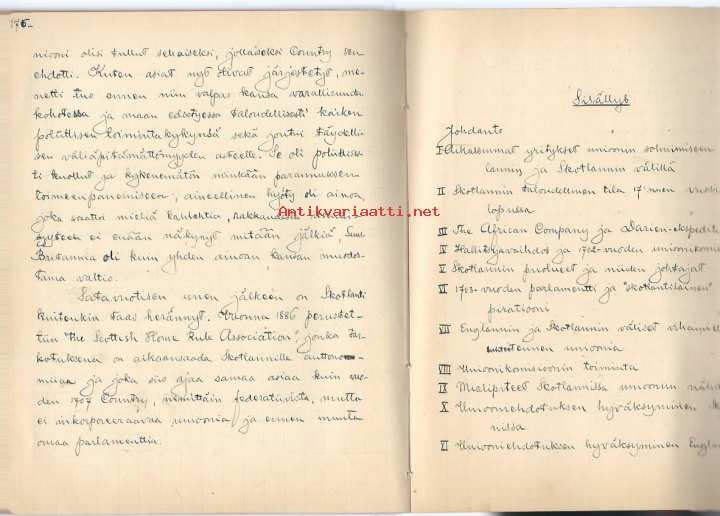 176.
niooni olisi tullut sellaiseksi, jollaiseksi Country sen
ehdotti. Kuten asiat nyt olivat järjestetyt, me-
netti tue ennen niin valpas kansa varallisuuden
kohotessa ja maan edistyessä taloudellisesti kaiken
poliittisen toimintakykynsä sekä joutui täydelli-
sen väliäpitämättömyyden asteelle. Se oli poliittises-
ti kuollut ja kykenemätön minkään parannuksen
toimeenpanemiseen, aineellinen hyöty oli ainoa,
joka saattoi mieliä kiihdyttää, rakkaudesta
ei enään näkynyt mitään jälkiä, Suur
Britannia oli kuin yhden ainoan kansan muodos-
tama valtio.
Satavuotisen unen jälkeen on Skotlanti
kuitenkin taas herännyt. Vuonna 1886 perustet-
tiin "The Scottish Home Rule Association", jonka tar-
kotuksena on aikaansaada Skotlannille autono-
miiaa ja joka siis ajaa samaa asiaa kuin vuo-
den 1707 Country, nimittäin federatiivista, mutta
ei inkorporeeraavaa unioonia ja ennen muuta
omaa parlamenttia.
Antikvariaatti.net
Sisällys
Johdanto
I Aikasemmat yritykset unioonin solmimiseen
lannin ja Skotlannin välillä
II Skotlannin taloudellinen tila 17:nnen vuosi
lopussa
III The African Company ja Darien-ekspeditio
IV Hallitsijavaihdos ja 1702-vuoden unioonikomis
V Skotlannin puolueet ja niiden johtajat
VI 1703-vuoden parlamentti ja "skotlantilainen"
piratiooni
VII Englannin ja Skotlannin väliset vihamieli
ennen unioonia
VIII Unioonikomisioonin toiminta
IX Mielipiteet Skotlannissa unioonin
X Unioniehdotuksen hyväksyminen Sk
nissa
XI Unioniehdotuksen hyväksyminen Englan